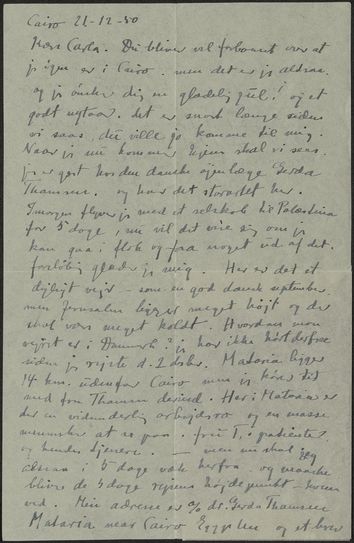 Cairo 21-12-50
Kære Carla. Du bliver vel forbavset over at
jeg igen er i Cairo. men det er jeg altsaa.
og jeg ønsker dig en glædelig jul! og et
godt nytaar. det er snart længe siden
vi saas, du ville jo komme til mig.
Naar jeg nu kommer hjem skal vi ses.
jeg er gæst hos den danske øjenlæge Gerda
Thamsen. og har det storartet her.
Imorgen flyver jeg med et selskab til Palæstina
for 5 dage, nu vil det vise sig om jeg
kan gaa i flok og faa noget ud af det.
foreløbig glæder jeg mig. Her er det et
dejligt vejr - som en god dansk september.
men Jerusalem ligger meget højt og der
skal være meget koldt. Hvordan mon
vejret er i Danmark? jeg har ikke hørt derfra
siden jeg rejste d. 2 dsbr. Mataria ligger
14 km. udenfor Cairo men jeg kører tit
med fru Thamsen derind. Her i Mataria er
der en vidunderlig arbejdsro og en masse
mennesker at se paa. fru T,s patienter
og hendes tjenere. - men nu skal jeg
altsaa i 5 dage væk herfra og maaske
blive de 5 dage rejsens højdepunkt - hvem
ved. Min adresse er c/o dr. Gerda Thamsen
Mataria near Cairo Egypten og et brev